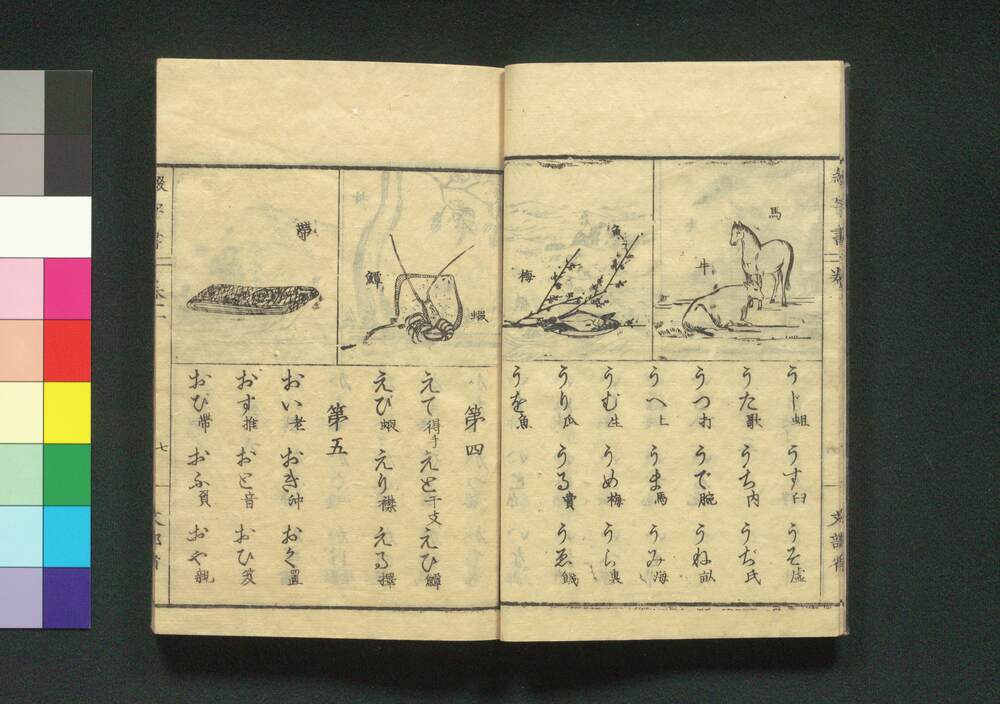 馬
牛
魚
梅
うじ蛆 うす臼 うそ虚
うた歌 うち内 うぢ氏
うつ打 うで腕 うね畝
うへ上 うま馬 うみ海
うむ生 うめ梅 うら裏
うり瓜 うる賣 うゑ饑
うを魚
蝦
鱏
帶
第四
えて得手 えと干支 えひ鱏
えび蝦 えり襟 える擇
第五
おい老 おき沖 おく置
おす推 おと音 おひ笈
おび帶 おふ負 おや親
七
文部省